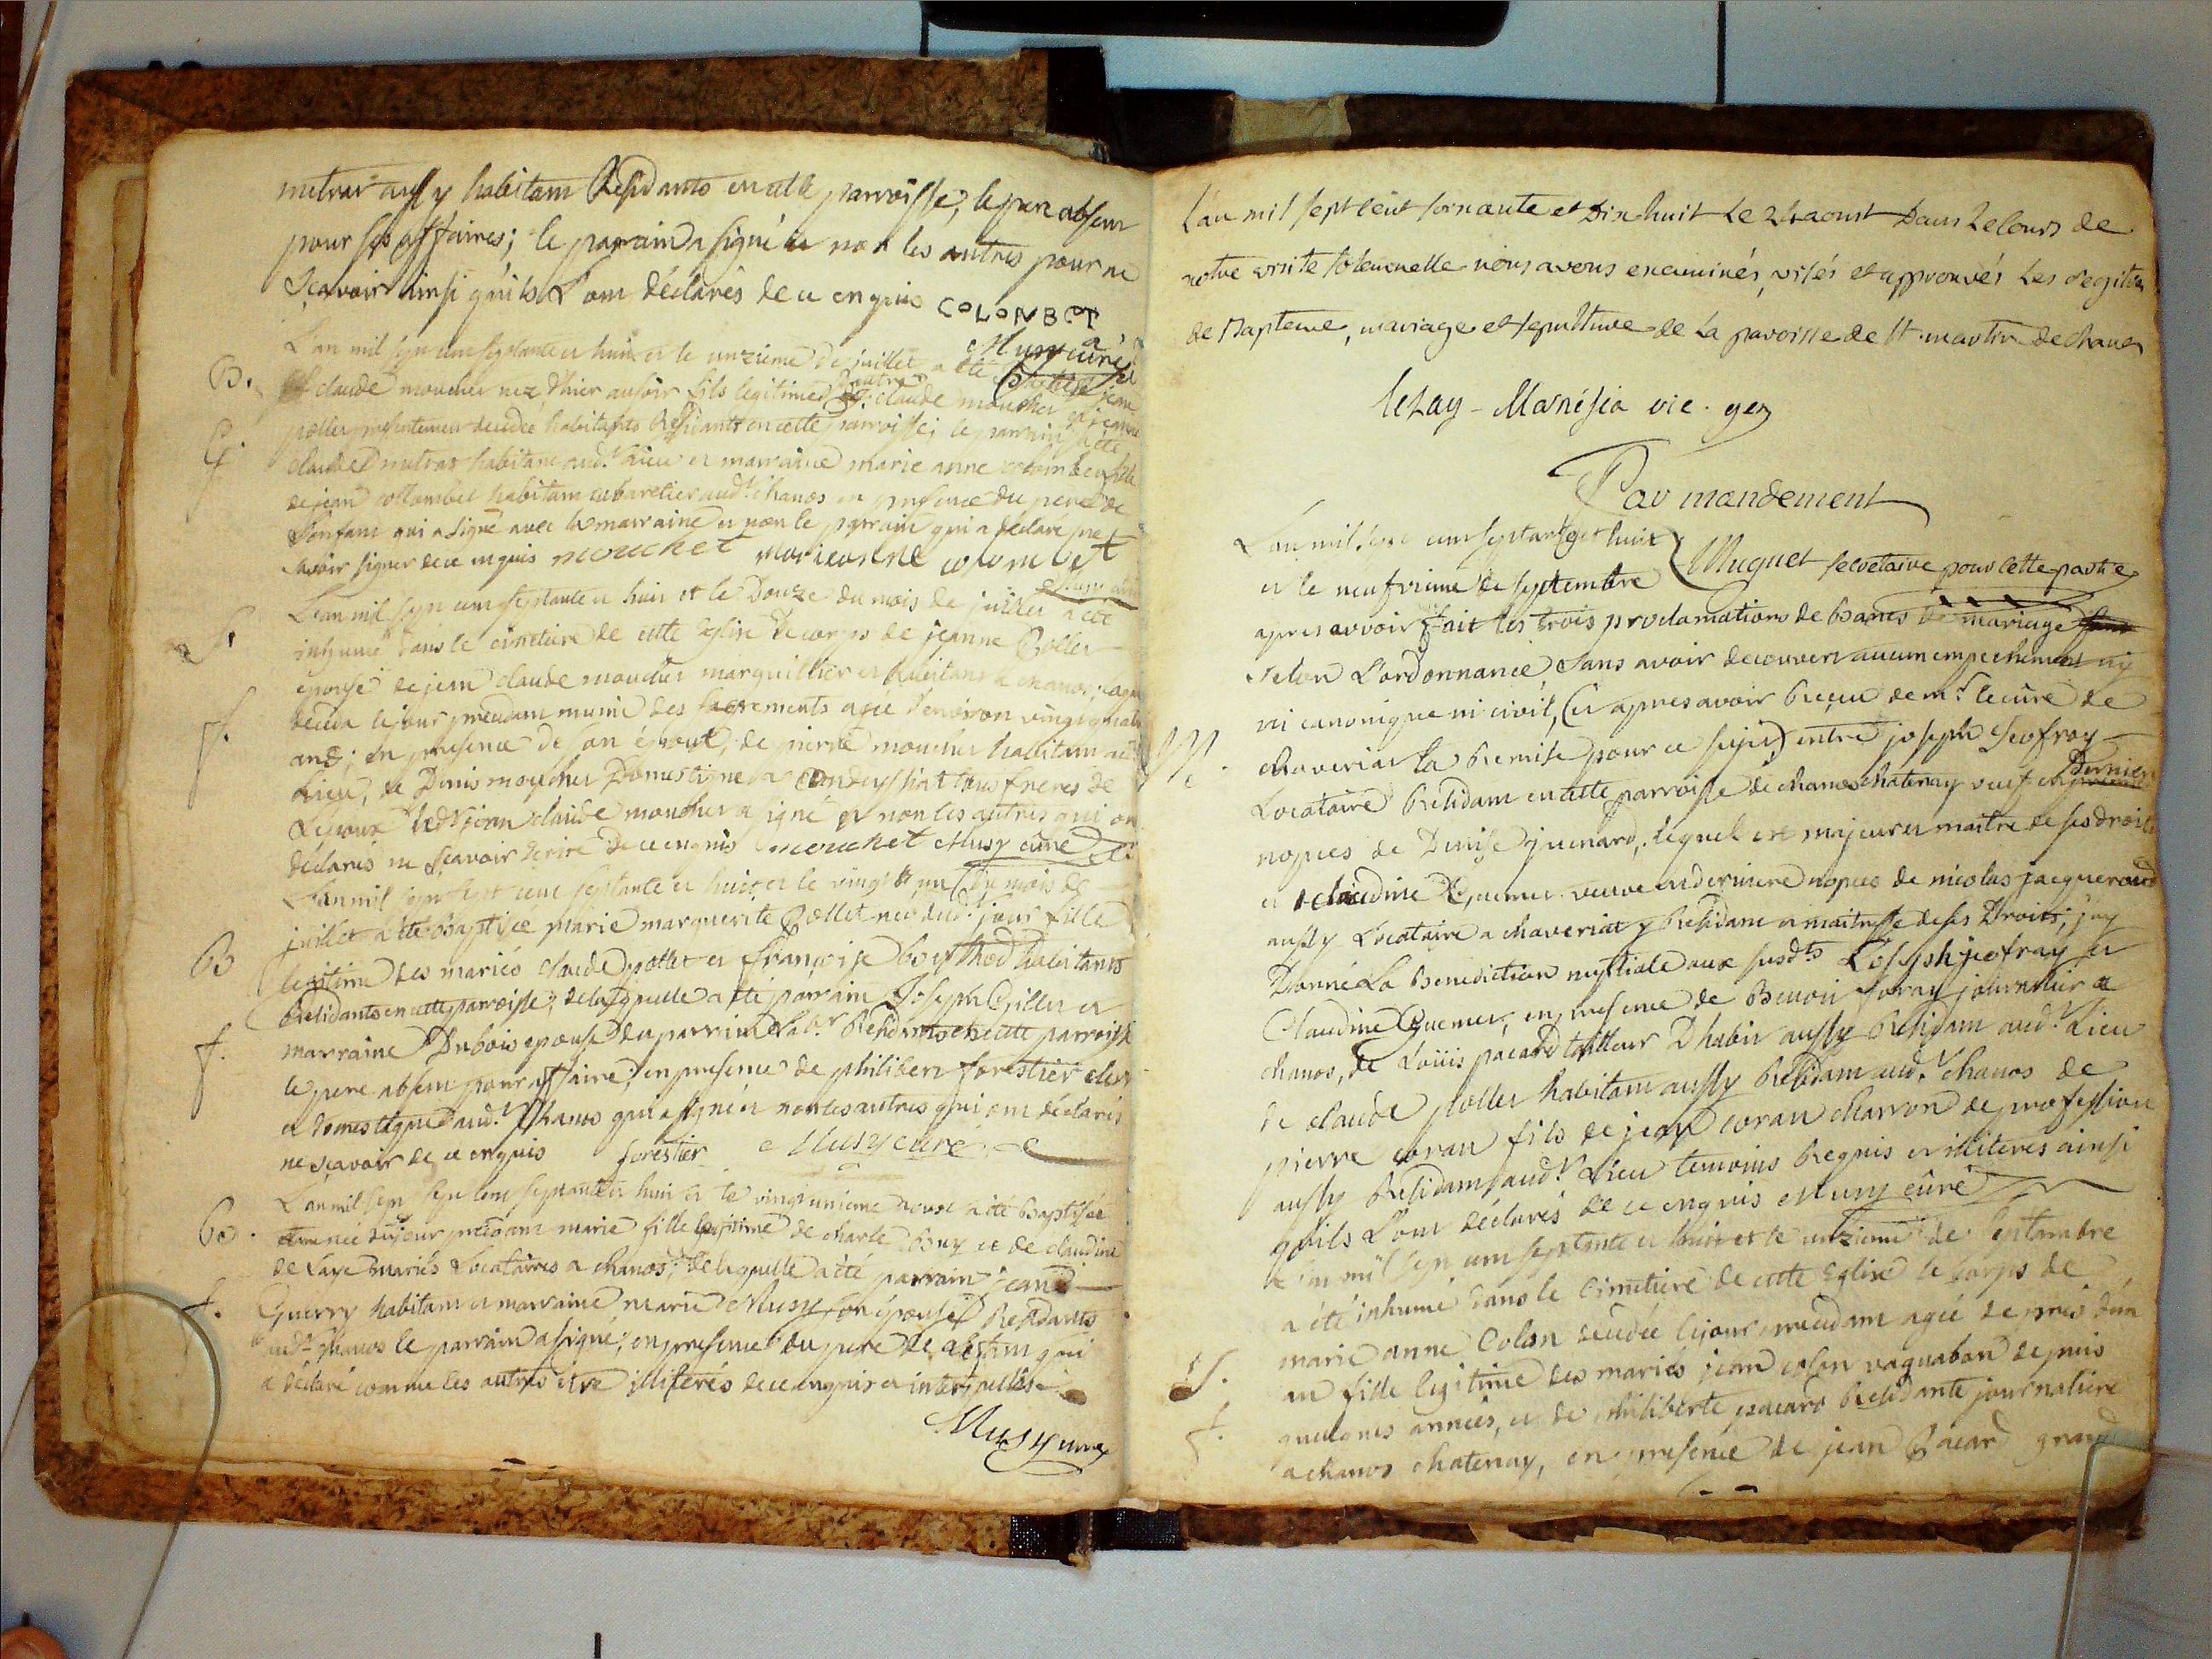 metrar aussy habitam Residants en cette parroisse, le pere absem
pour ses affaires; le parrain a signé et non les autres pour ne
scavoir ainsi quils L'om déclarés de ce enquis COLONBET
Musy curé
L'an mil sept cens septante et huit et le unzieme de juillet a été Baptisé jean
B. claude mouchet nez d'hier au soir fils legitime d'autre claude mouchet et jeanne
pollet presentement decedée habitants Residants en cette parroisse; le parrain a été
f. claude metrar habitant aud.t Lieu et marraine marie anne colombet fille
de jean collombet habitam cabaretier aud.t chanos en presence du pere de
L'enfant qui a signé avec la marraine et non le parrain qui a déclaré ne
savoir signer de ce enquis mouchet marieanne colombet
Musy curé
L'an mil sept cens septante et huit et le Douze du mois de juillet a été
S. inhumé dans le cimetiere de cette Eglise Le corps de jeanne Pollet
épouse de jean claude mouchet marguillier et habitans a chanos
decedée le jour precedam munie des sacrements agée d'environ vingt quatre
f. ans; en presence de son époux, de pierre mouchet habitam au
Lieu, de Denis mouchet Domestique a Condeyssiat tous freres de
L'epoux led.t jean claude mouchet a signé et non les autres qui on
déclarés ne scavoir Ecrire de ce enquis mouchet Musy curé
L'an mil sept cens septante et huit et le vingt un du mois de
juillet a été Baptisée marie marguerite Pollet née dud.t jour fille
B legitime des mariés claude pollet et françoise habitants
Residants en cette parroisse, de laquelle a été parrain Joseph Gillet et
f. marraine Dubois epouse du parrain Lab.r Residants en cette parroisse
le pere absem pour affaire; en presence de philibert forestier clerc
et domestique aud.t Chanos qui a signé et non les autres qui om déclarés
ne scavoir de ce enquis forestier Musy curé
L'an mil sept cens septante et huit et le vingt unieme aoust a été Baptisée
B. née du jour precedam marie fille legitime de charle Buy et de claudine
de Laye mariés Locataires a chanos; de laquelle a été parrain jean
f. Guerry habitam et marraine marie Musy son épouse Residants
aud.t chanos le parrain a signé; en presence du pere de qui
a déclaré comme les autres être illiterés de ce enquis et interpellés
Musy curé
L'an mil sept cent soixante et Dix huit Le 24 aoust Dans Le cours de
notre visite solemnelle nous avons examinés, visés et approuvés Les regitres
de Bapteme, mariage et sepulture de La paroisse de St. martin de chanos
lezay - Marnésia vic. gen
Par mandement
Muguet secretaire pour cette partie
L'an mil sept cens septante et huit
et le neufvieme de septembre
apres avvoir fait les trois proclamations de bancs de mariage
selon L'ordonnance, sans avoir decouvert aucun empechement ny
ni canonique ni civil, (et apres avoir Reçeu de m.r le curé de
M. chaveriat la Remise pour ce sujet) entre joseph Geofray
Locataire Residam en cette parroisse de chanos chatenay veuf en Dernieres
nopces de Denise juenard, lequel est majeur et maitre de ses droits
et claudine Guemet veuve en derniere nopces de nicolas jacqueroud
aussy Locataire a chaveriat y Residam et maitresse de ses Droits; j'ay
Donné La Benediction nuptiale aux susd.ts Joseph jeofray et
Claudine Guemet, en presence de Benoit foray journalier a
chanos, de Loüis pacard tailleur D'habit aussy Residam aud.t Lieu
de claude pollet habitam aussy Residam aud.t chanos de
pierre coran fils de jean coran charron de profession
aussy Residam aud.t Lieu temoins Requis et illiterés ainsi
quils L'om déclarés de ce enquis Musy curé
L'an mil sept cens septante et huit et le unzieme de septambre
a été inhumé dans le cimetiere de cette Eglise le Corps de
marie anne Colon decedée le jour precedam agée de prés d'un
S. an fille legitime des mariés jean colon vaguabon depuis
f. quelques années, et de philiberte pacard Residante journaliere
a chanos chatenay, en presence de jean Pacard grand